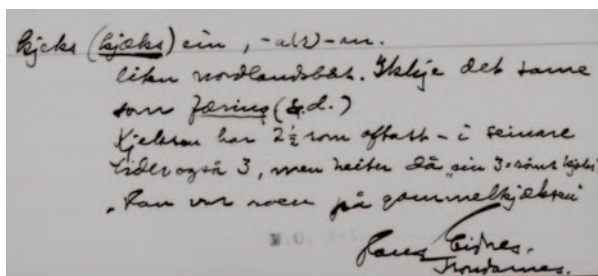 kjeks (kjæks) ein, -a(r) -an.
liten nordlandsbåt. Ikkje det same
som færing (s.d.)
Kjeksen har 2½ rom oftast - i seinare
tider også 3, men heiter då "ein 3-roms kjeks"
"Han var roen på gammelkjæksen"
N.O.
Hans Eidnes.
Trondarnes.